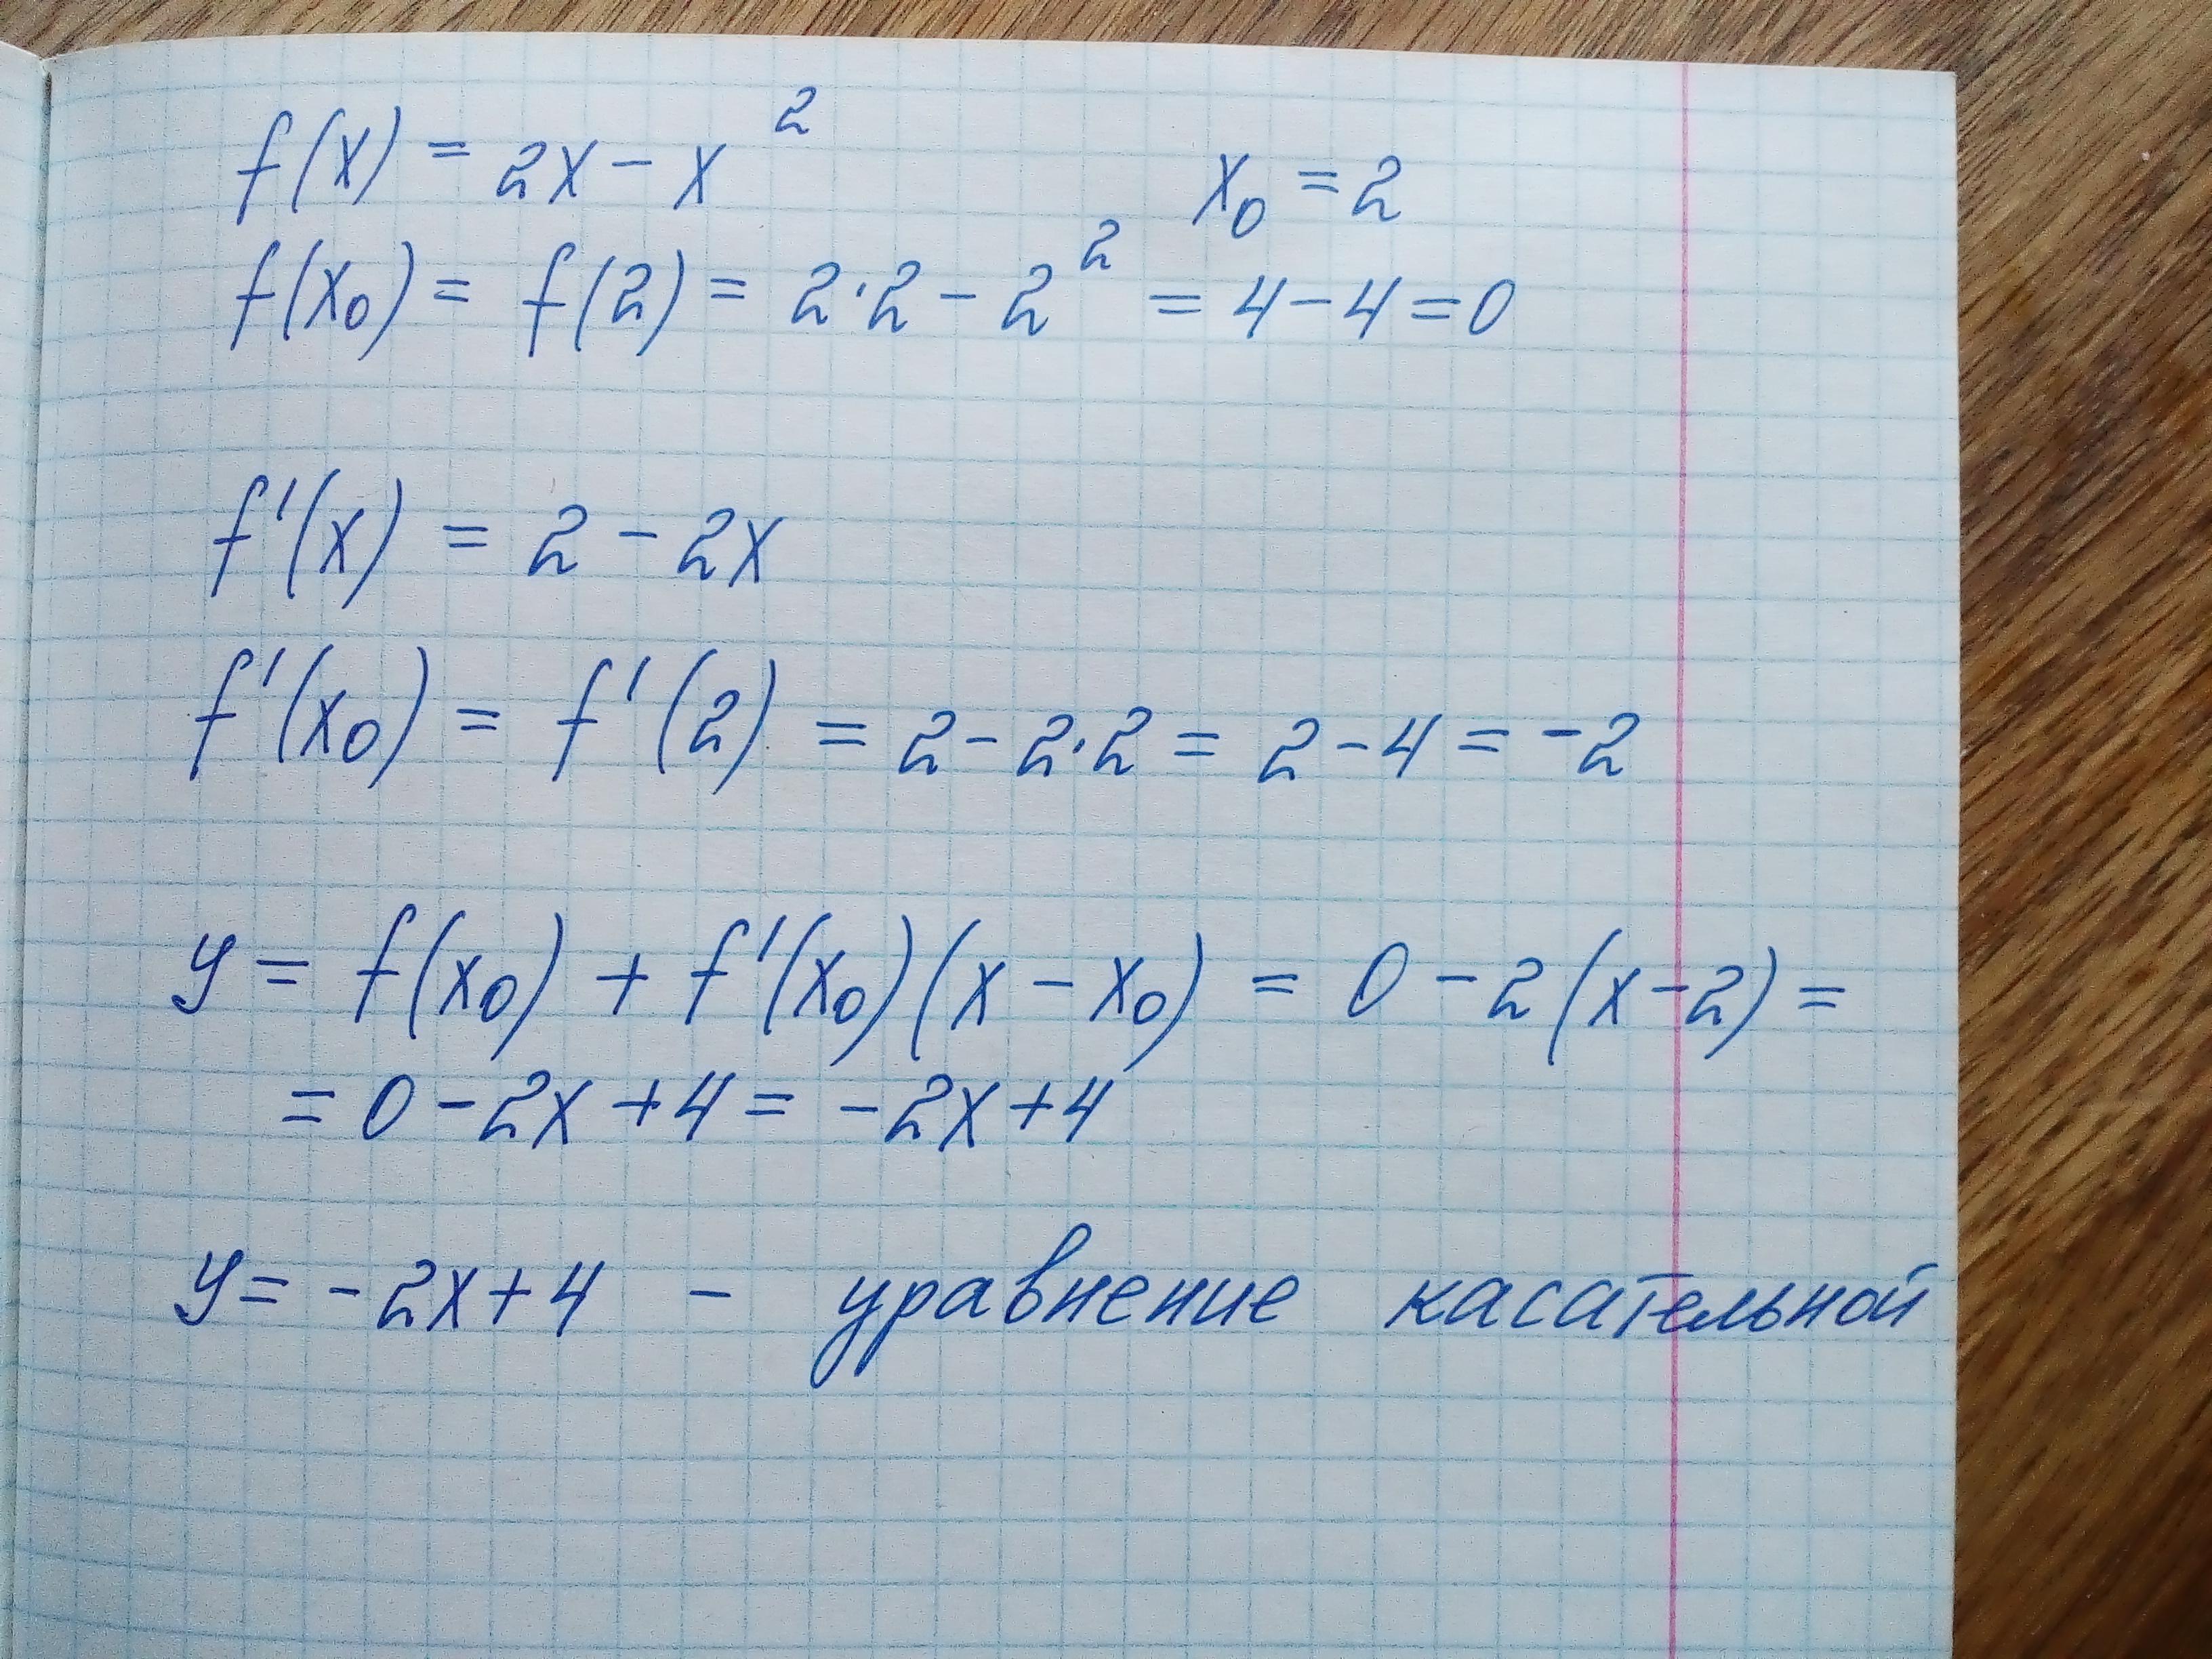 f(x) = 2x - x² x₀ = 2
f(x₀) = f(2) = 2·2 - 2² = 4 - 4 = 0
f'(x) = 2 - 2x
f'(x₀) = f'(2) = 2 - 2·2 = 2 - 4 = -2
y = f(x₀) + f'(x₀)(x - x₀) = 0 - 2(x - 2) =
= 0 - 2x + 4 = -2x + 4
y = -2x + 4 - уравнение касательной